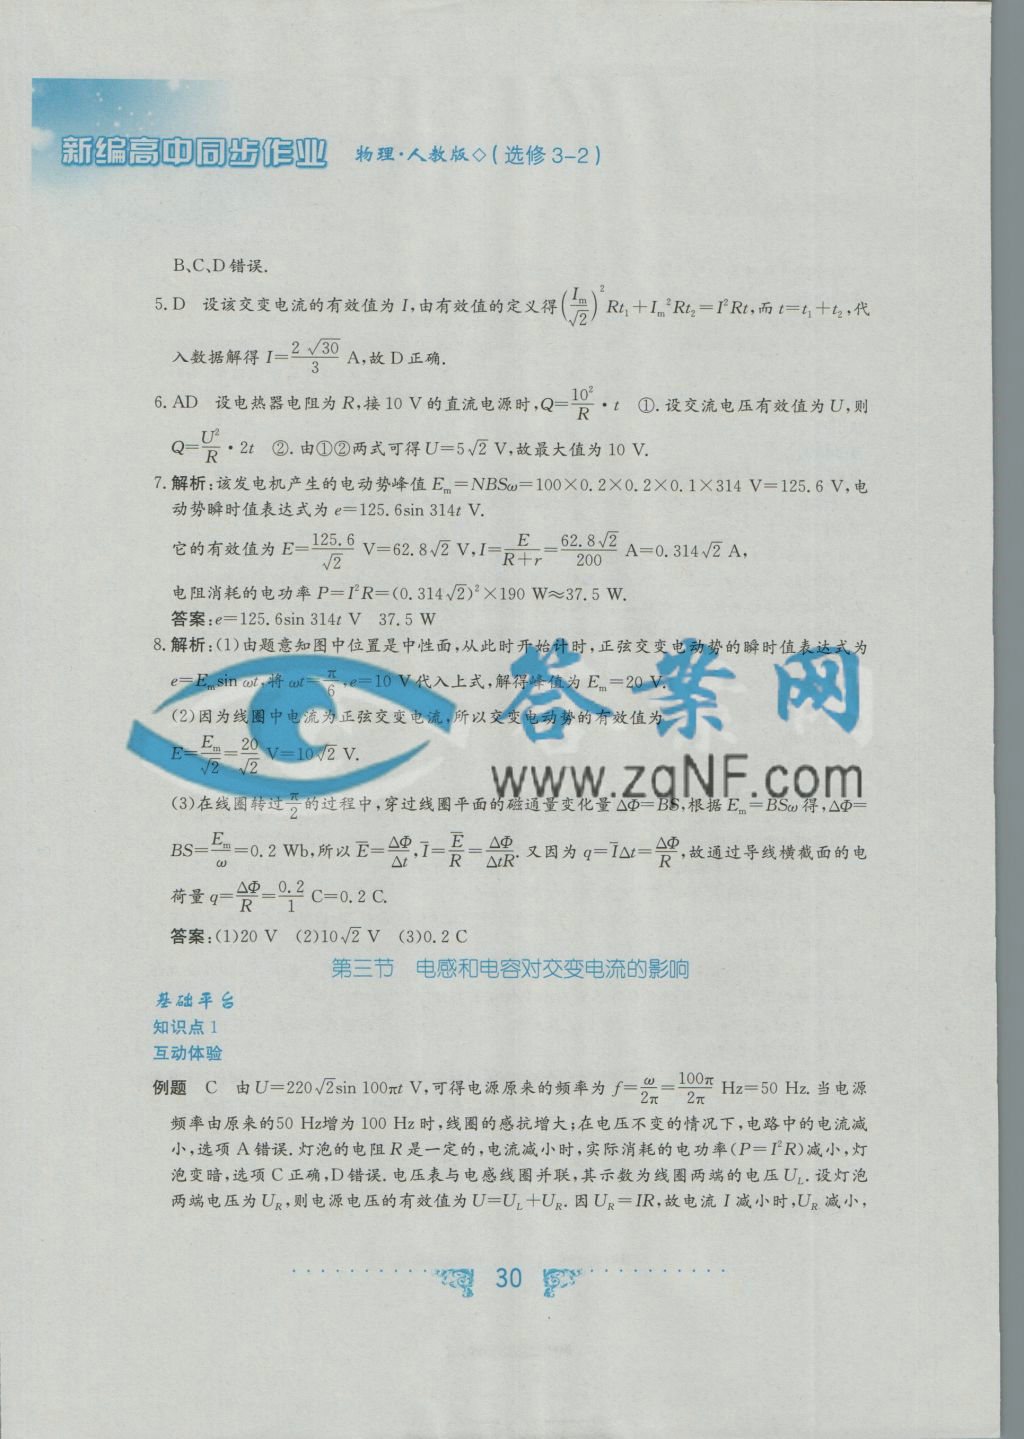 新编高中同步作业 物理·人教版◇(选修3-2)
B、C、D错误.
5. D 设该交变电流的有效值为 I,由有效值的定义得(I_m/√2)²Rt₁+I_m²Rt₂=I²Rt,而 t=t₁+t₂,代
入数据解得 I=2√30/3 A,故 D 正确.
6. AD 设电热器电阻为 R,接 10 V 的直流电源时,Q=10²/R·t ①.设交流电压有效值为 U,则
Q=U²/R·2t ②.由①②两式可得 U=5√2 V,故最大值为 10 V.
7. 解析:该发电机产生的电动势峰值 E_m=NBSω=100×0.2×0.2×0.1×314 V=125.6 V,电
动势瞬时值表达式为 e=125.6sin 314t V.
它的有效值为 E=125.6/√2 V=62.8√2 V,I=E/(R+r)=62.8√2/200 A=0.314√2 A,
电阻消耗的电功率 P=I²R=(0.314√2)²×190 W≈37.5 W.
答案:e=125.6sin 314t V 37.5 W
8. 解析:(1)由题意知图中位置是中性面,从此时开始计时,正弦交变电动势的瞬时值表达式为
e=E_m sin ωt,将 ωt=π/6,e=10 V代入上式,解得峰值为 E_m=20 V.
(2)因为线圈中电流为正弦交变电流,所以交变电动势的有效值为
E=E_m/√2=20/√2 V=10√2 V.
(3)在线圈转过π/2的过程中,穿过线圈平面的磁通量变化量 ΔΦ=BS,根据 E_m=BSω 得,ΔΦ=
BS=E_m/ω=0.2 Wb,所以 E̅=ΔΦ/Δt,I̅=E̅/R=ΔΦ/ΔtR.又因为 q=I̅Δt=ΔΦ/R,故通过导线横截面的电
荷量 q=ΔΦ/R=0.2/1 C=0.2 C.
答案:(1)20 V (2)10√2 V (3)0.2 C
答案网
www.zqNF.com
第三节 电感和电容对交变电流的影响
基础平台
知识点 1
互动体验
例题 C 由 U=220√2sin 100πt V,可得电源原来的频率为 f=ω/2π=100π/2π Hz=50 Hz.当电源
频率由原来的50 Hz增为 100 Hz 时,线圈的感抗增大;在电压不变的情况下,电路中的电流减
小,选项 A 错误.灯泡的电阻 R 是一定的,电流减小时,实际消耗的电功率(P=I²R)减小,灯
泡变暗,选项 C 正确,D 错误.电压表与电感线圈并联,其示数为线圈两端的电压 U_L.设灯泡
两端电压为 U_R,则电源电压的有效值为 U=U_L+U_R.因 U_R=IR,故电流 I 减小时,U_R 减小,
30